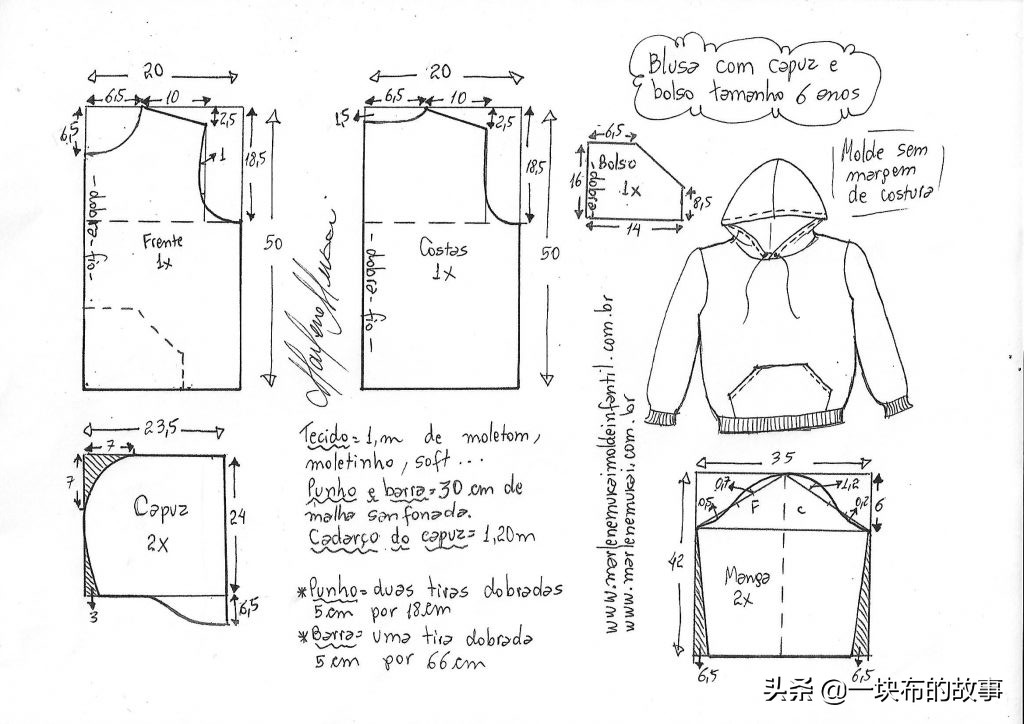 20
6,5
10
2,5
6,5
1
18,5
- dobra - fio -
Frente
1x
50
20
6,5
10
1,5
2,5
18,5
- dobra - fio -
Costas
1x
50
Marlene Mukai
Blusa com capuz e
bolso tamanho 6 anos
Molde sem
margem
de costura
6,5
Bolso
1x
dobra
16
8,5
14
www.marlenemukaimoldeinfantil.com.br
www.marlenemukai.com.br
23,5
7
7
Capuz
2x
24
3
6,5
Tecido = 1,m de moletom,
moletinho, soft ...
Punho e barra = 30 cm de
malha sanfonada.
Cadarço do capuz = 1,20m
* Punho = duas tiras dobradas
5 cm por 18 cm
* Barra = uma tira dobrada
5 cm por 66 cm
35
0,7
1,2
0,5
F
c
0,2
6
42
Manga
2x
6,5
6,5
头条 @一块布的故事